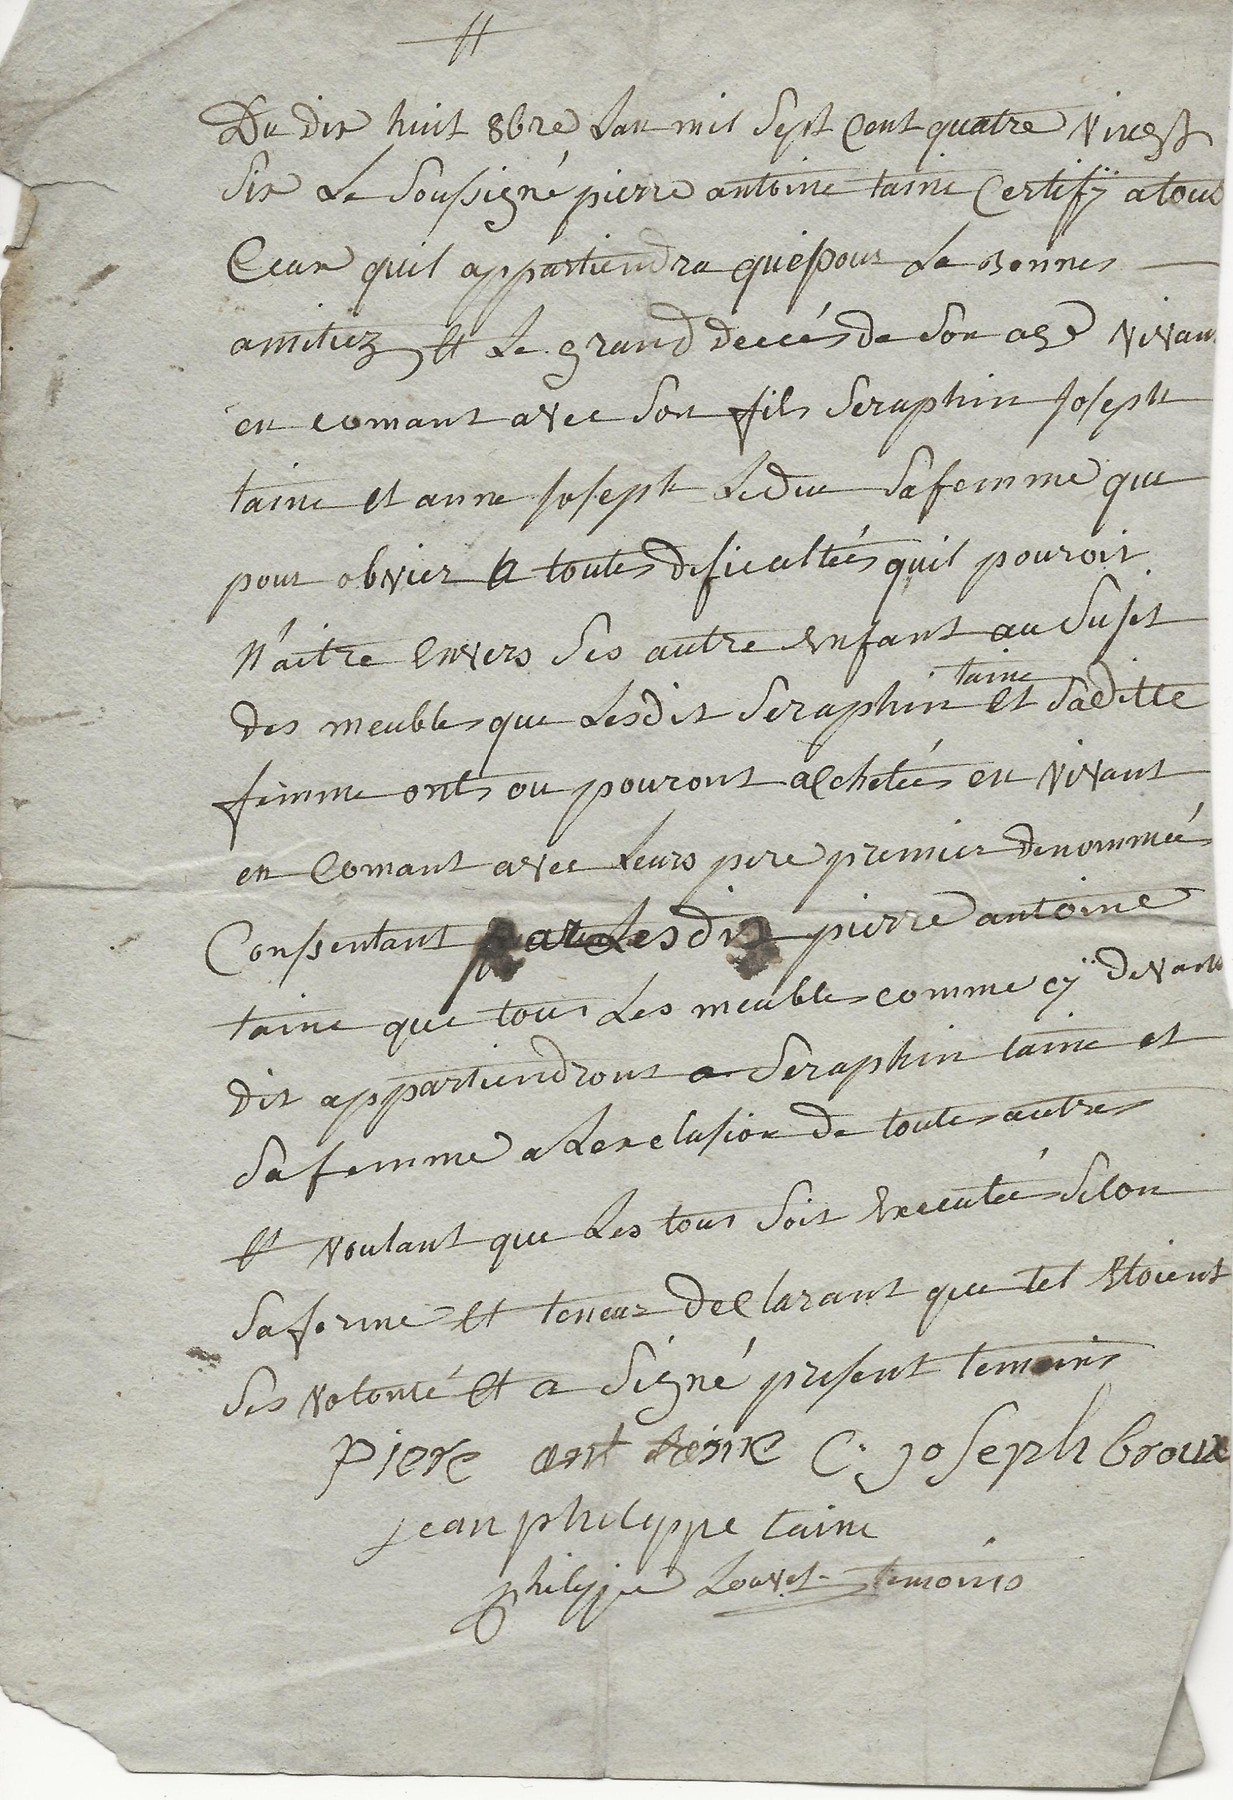 Du dix huit 8bre Lan mil Sept Cent quatre vingt
Six Le Soussigné pierre antoine taine Certifÿ a tous
Ceux quil appartiendra que pour La Bonnes
amitiez et Le grand deccés de Son age vivant
en comant avec Son fils Seraphin Joseph
taine et anne Joseph Leduc Sa femme que
pour obvier a toutes deficcultées quil pouroit
Naitre Envers Ses autre Enfant au Sujet
des meubles que Lesdit Seraphin taine et Saditte
femme onts ou pouront achetées en vivant
en Comant avec Leurs pere premier denommeé
Conssentant par Lesdit pierre antoine
taine que tous Les meubles comme cÿ devant
dit appartiendront a Seraphin taine et
Sa femme a Lexclusion de toutes autres
et voulant que Les tous Soit Executée Selon
Sa forme et teneur declarant que tel Etoient
Ses volonté et a Signé present temoins
Piere ant teine C: joseph broux
jean philippe taine
philippe Louvet temoins